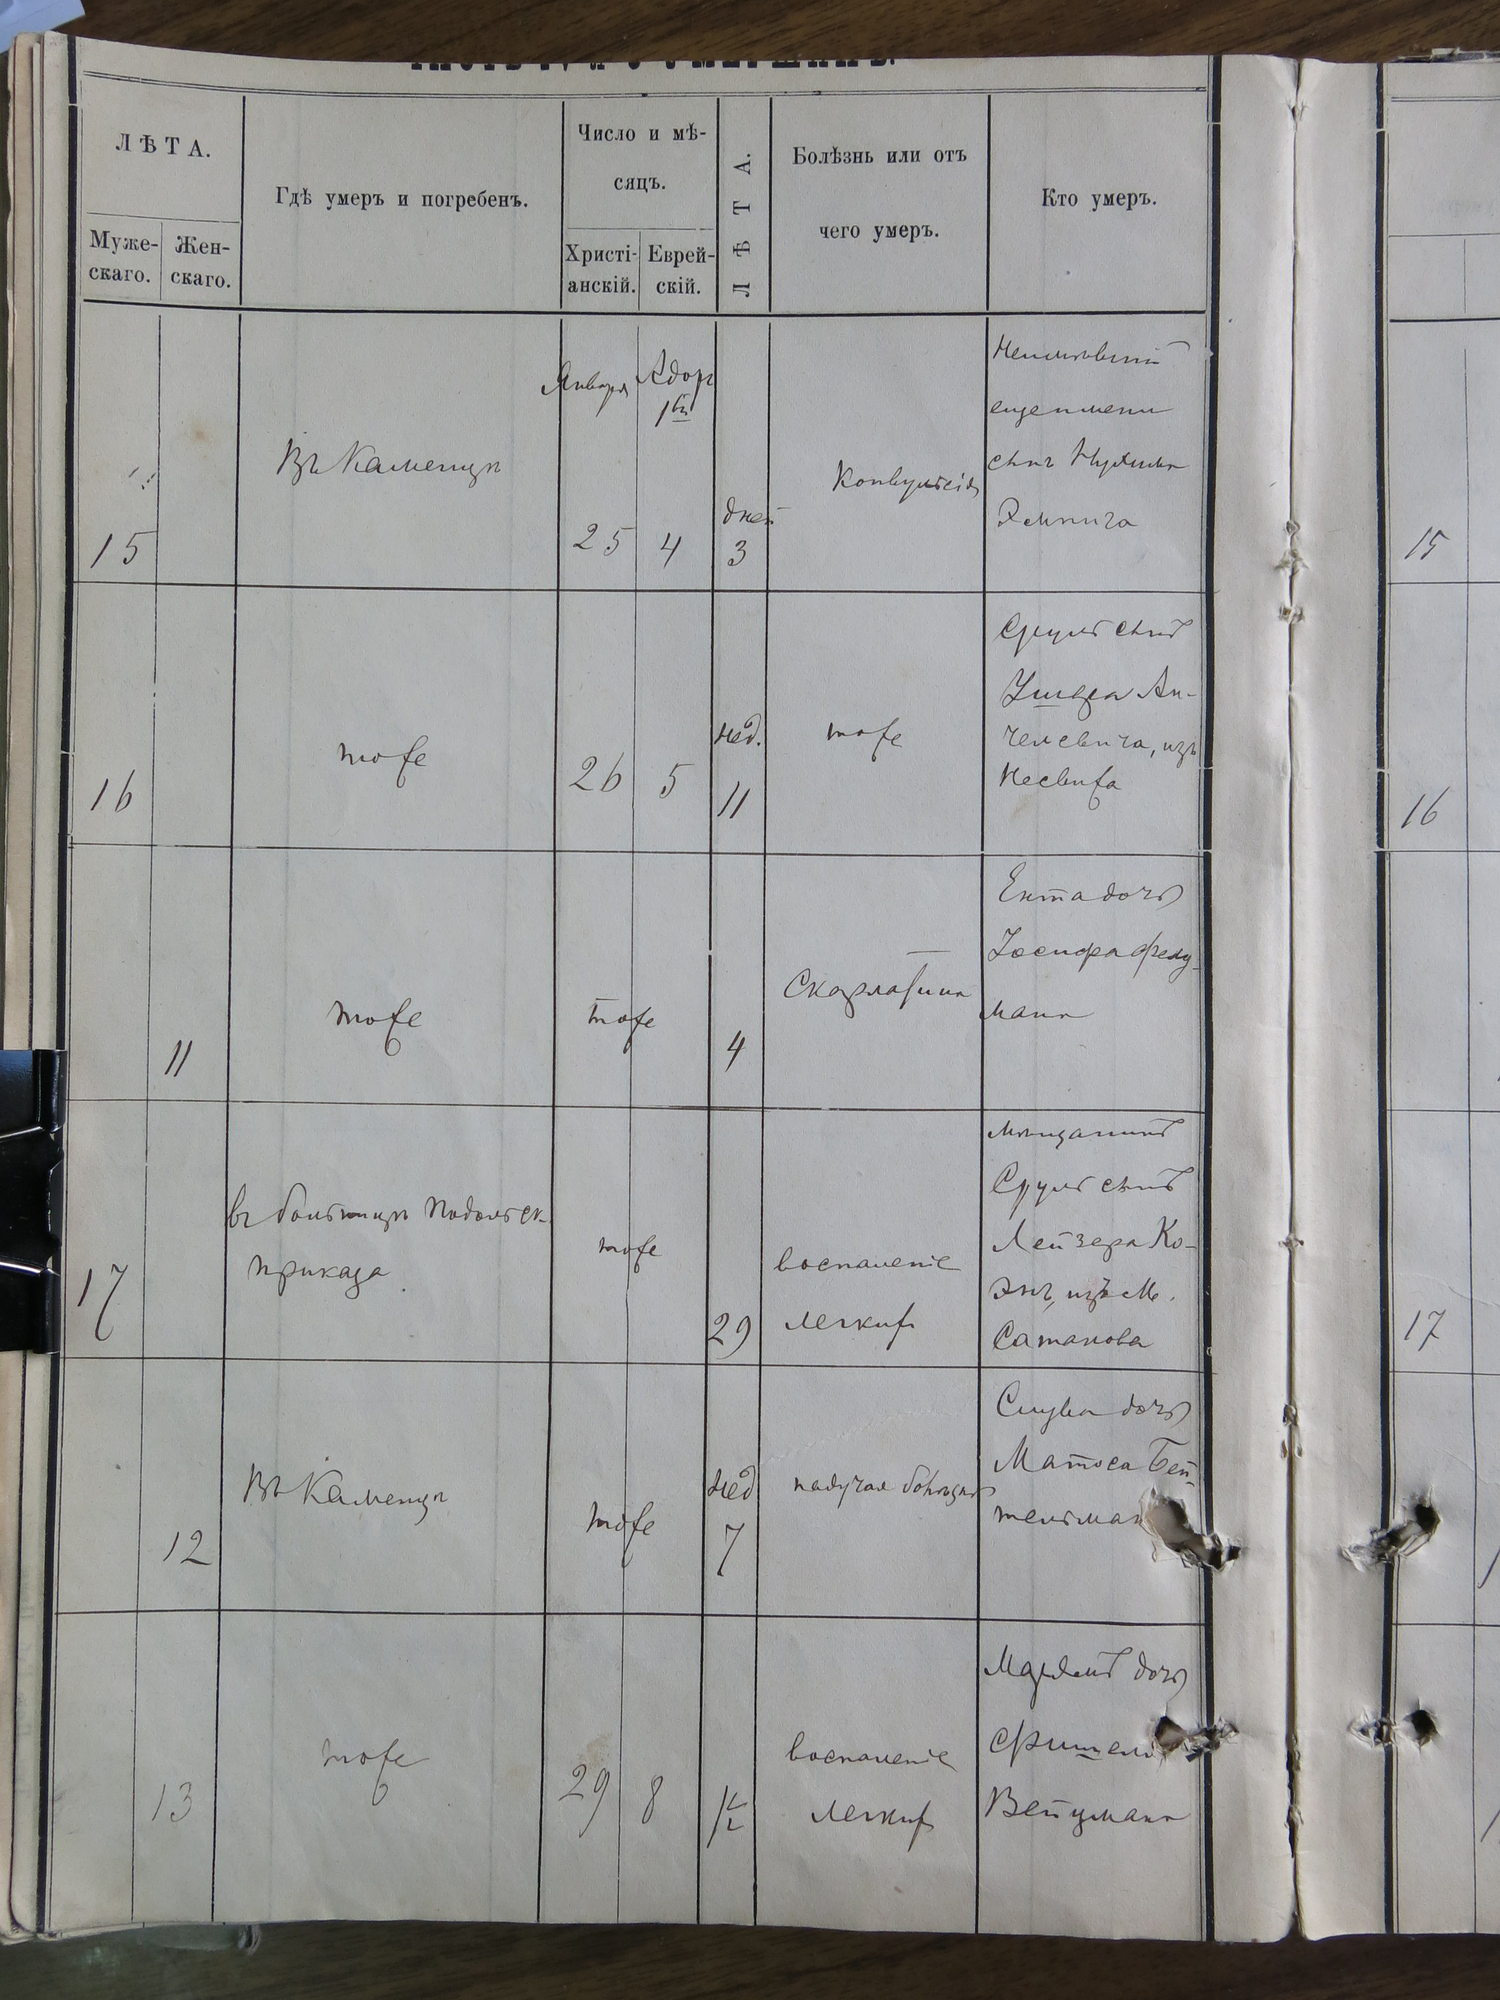 ЛѢТА.
Муже-
скаго.
Жен-
скаго.
Гдѣ умеръ и погребенъ.
Число и мѣ-
сяцъ.
Христі-
анскій.
Еврей-
скій.
ЛѢТА.
Болѣзнь или отъ
чего умеръ.
Кто умеръ.
15
Въ Каменцѣ
Января
25
Адоръ
1й
4
дней
3
Конвульсія
Неимѣвшій
еще имени
сынъ Нухима
16
тоже
26
5
нед.
11
тоже
Сруль сынъ
Ушера Ан-
челевича, изъ
Несвижа
11
тоже
тоже
4
Скарлатина
Ента дочь
Іосифа Фельд-
мана
17
въ больницѣ Подольск.
приказа
тоже
29
воспаленіе
легкихъ
мѣщанинъ
Сруль сынъ
Лейзера Ко-
энъ, изъ м.
Сатанова
12
Въ Каменцѣ
тоже
нед
7
падучая болѣзнь
дочь
Матоса Бей-
тельман
13
тоже
29
8
1½
воспаленіе
легкихъ
Маріемъ дочь
Фишеля
Вейцмана
15
16
17